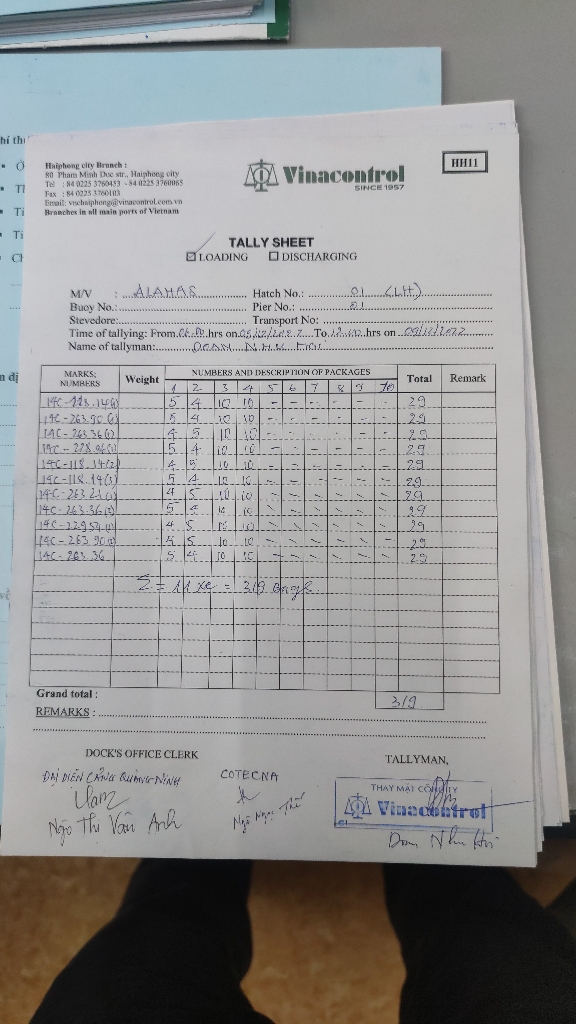 Haiphong city Branch :
80 Pham Minh Duc str., Haiphong city
Tel : 84 0225 3760453 - 84 0225 3760065
Fax : 84 0225 3760103
Email: vnchaiphong@vinacontrol.com.vn
Branches in all main ports of Vietnam
Vinacontrol
SINCE 1957
HH11
TALLY SHEET
☑ LOADING ☐ DISCHARGING
M/V : ALAHAS Hatch No.: 01 (LH)
Buoy No.: Pier No.: 01
Stevedore: Transport No:
Time of tallying: From hrs on To hrs on
Name of tallyman: DOAN NHU
MARKS; NUMBERS Weight NUMBERS AND DESCRIPTION OF PACKAGES Total Remark
1 2 3 4 5 6 7 8 9 10
5 4 10 10 - - - - - - 29
14C-263.90 5 4 10 10 - - - - - - 29
14C-263.36 4 5 10 10 - - - - - - 29
14C- 5 4 10 10 - - - - - - 29
14C-118.14(2) 4 5 10 10 - - - - - - 29
14C-118.14 5 4 10 10 - - - - - - 29
14C-263.21 4 5 10 10 - - - - - - 29
14C-263.36 5 4 10 10 - - - - - - 29
14C-229.54 4 5 10 10 - - - - - - 29
14C-263.90 5 10 10 - - - - - - 29
14C-263.36 5 4 10 10 - - - - - - 29
Σ = 11 xe = 319
Grand total : 319
REMARKS :
DOCK'S OFFICE CLERK TALLYMAN,
ĐẠI DIỆN CẢNG QUẢNG NINH COTECNA
THAY MẶT CÔNG TY
Vinacontrol
Ngô Thị Vân Anh Ngô Ngọc Thế
Doan Nhu